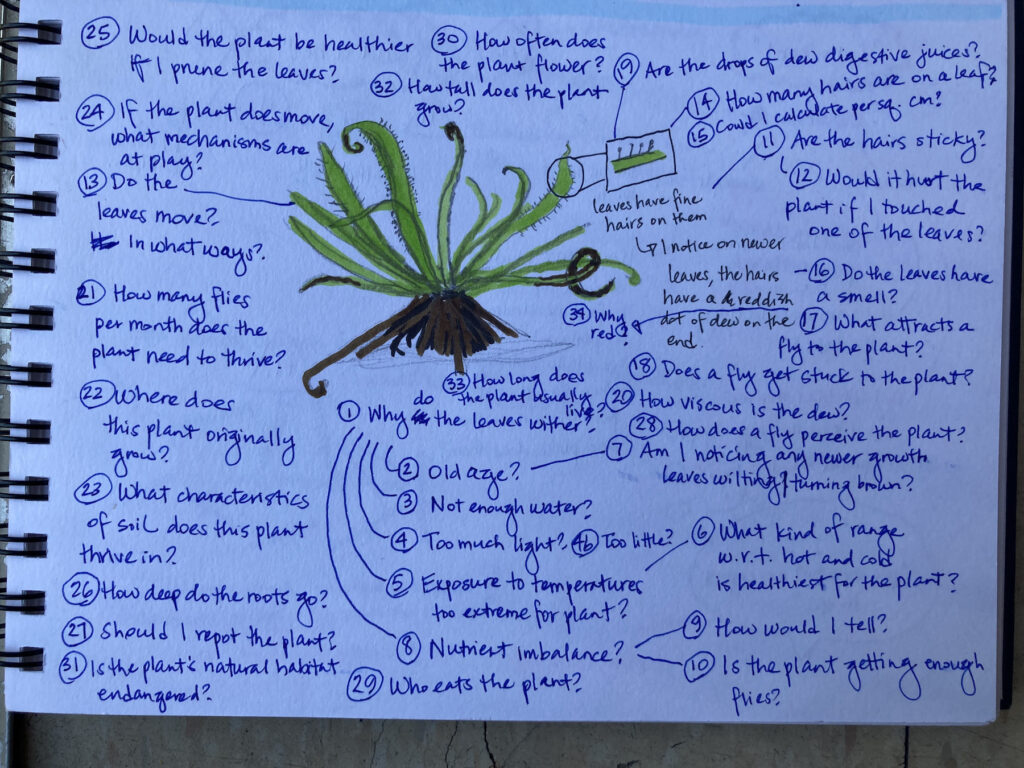 25 Would the plant be healthier
if I prune the leaves?
30 How often does
the plant flower?
32 How tall does the plant
grow?
19 Are the drops of dew digestive juices?
14 How many hairs are on a leaf?
15 Could I calculate per sq. cm?
24 If the plant does move,
what mechanisms are
at play?
11 Are the hairs sticky?
12 Would it hurt the
plant if I touched
one of the leaves?
13 Do the
leaves move?
In what ways?
leaves have fine
hairs on them
↳ I notice on newer
leaves, the hairs
have a reddish
dot of dew on the
end.
16 Do the leaves have
a smell?
34 Why
red?
17 What attracts a
fly to the plant?
21 How many flies
per month does the
plant need to thrive?
18 Does a fly get stuck to the plant?
33 How long does
the plant usually
live?
1 Why do the leaves wither?
20 How viscous is the dew?
28 How does a fly perceive the plant?
22 Where does
this plant originally
grow?
2 Old age?
7 Am I noticing any newer growth
leaves wilting/turning brown?
3 Not enough water?
23 What characteristics
of soil does this plant
thrive in?
4 Too much light? 4b Too little?
6 What kind of range
w.r.t. hot and cold
is healthiest for the plant?
5 Exposure to temperatures
too extreme for plant?
26 How deep do the roots go?
27 Should I repot the plant?
8 Nutrient imbalance?
9 How would I tell?
10 Is the plant getting enough
flies?
31 Is the plant's natural habitat
endangered?
29 Who eats the plant?